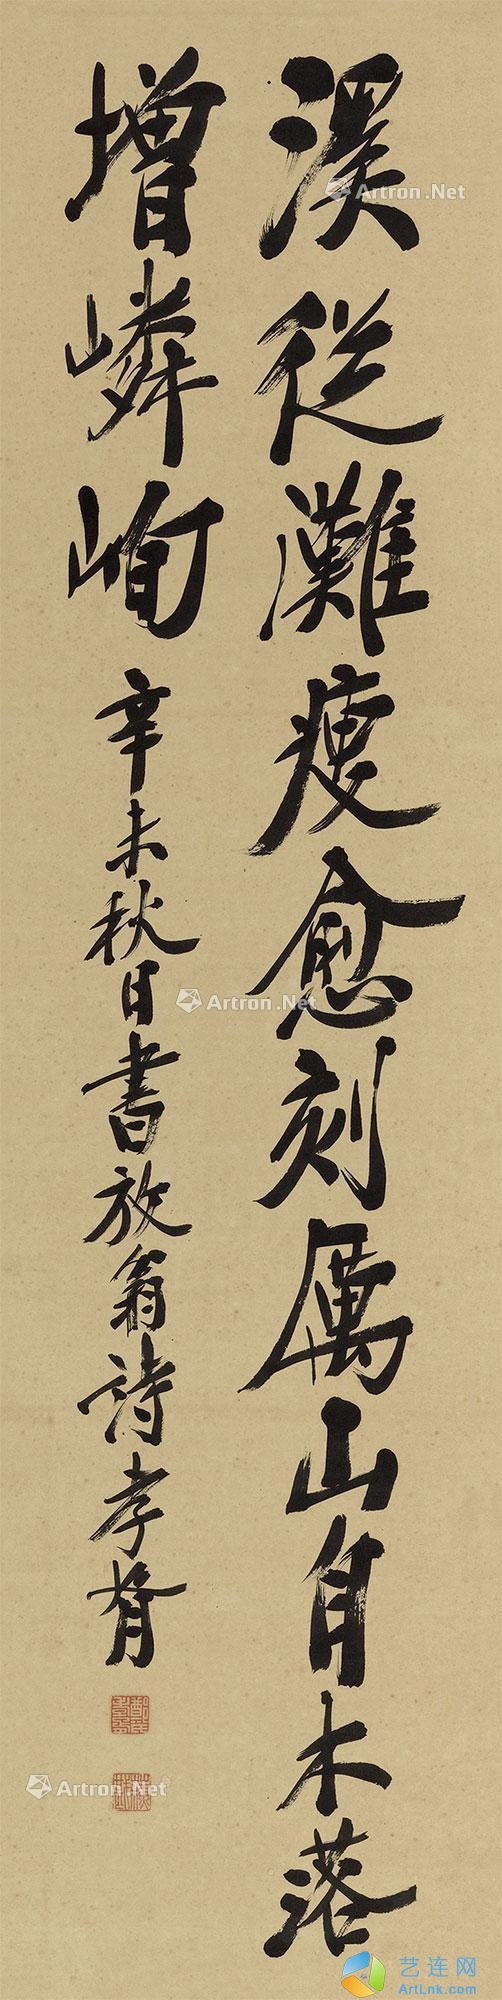 溪从灘瘦愈刻厲山自木落
增嶙峋
辛未秋日書放翁詩孝胥
Artron.Net
Artron.Net
Artron.Net
艺连网
ArtLnk.com